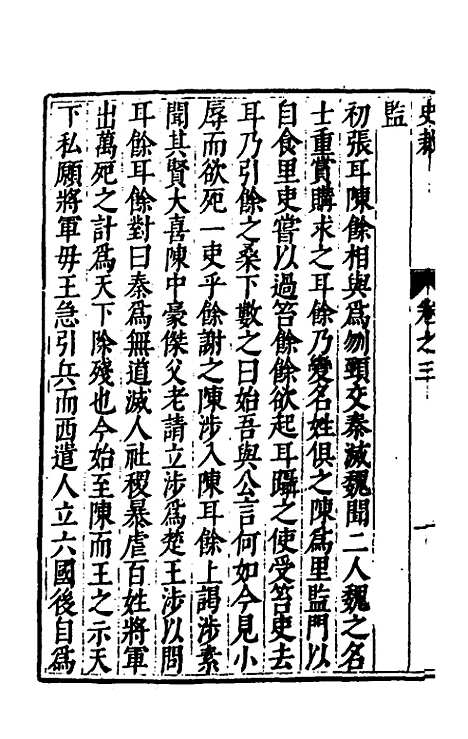 史裁 卷之三 一
監
初張耳陳餘相與爲刎頸交秦滅魏聞二人魏之名
士重賞購求之耳餘乃變名姓俱之陳爲里監門以
自食里吏嘗以過笞餘餘欲起耳躡之使受笞吏去
耳乃引餘之桑下數之曰始吾與公言何如今見小
辱而欲死一吏乎餘謝之陳涉入陳耳餘上謁涉素
聞其賢大喜陳中豪傑父老請立涉爲楚王涉以問
耳餘耳餘對曰秦爲無道滅人社稷暴虐百姓將軍
出萬死之計爲天下除殘也今始至陳而王之示天
下私願將軍毋王急引兵而西遣人立六國後自爲